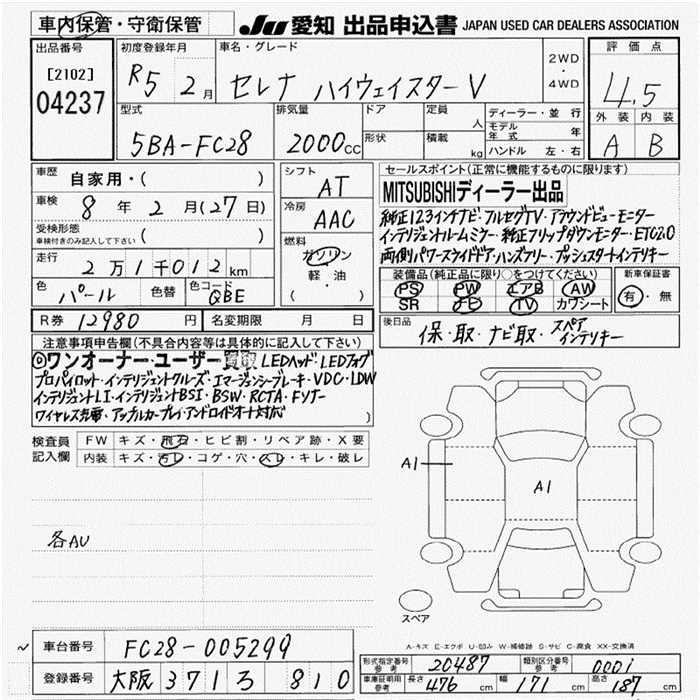 車内保管・守衛保管
JU 愛知 出品申込書 JAPAN USED CAR DEALERS ASSOCIATION
出品番号
[2102]
04237
初度登録年月
R5 2月
車名・グレード
セレナ ハイウェイスターV
2WD
・
4WD
評価点
4.5
外装 内装
A B
型式
5BA-FC28
排気量
2000cc
ドア
形状
定員
人
積載
kg
ディーラー・並行
モデル年式 年
ハンドル 左・右
車歴
自家用・( )
車検
8年2月(27日)
受検形態
車検付きのみ記入して下さい ( )
走行
2万1千012km
色
パール
色替
色コード
QBE
シフト
AT
冷房
AAC
燃料
ガソリン
軽油
( )
セールスポイント(正常に機能するものに限ります)
MITSUBISHIディーラー出品
純正12.3インチナビ・フルセグTV・アラウンドビューモニター
インテリジェントルームミラー・純正フリップダウンモニター・ETC2.0
両側パワースライドドア・ハンズフリー・プッシュスタートインテリキー
装備品(純正品に限り○をつけてください)
PS PW エアB AW
SR ナビ TV カワシート
新車保証書
有・無
R券 12980円
名変期限 月 日
後日品
保・取・ナビ取・スペアインテリキー
注意事項申告欄(不具合内容等は具体的に記入して下さい)
◎ワンオーナー・ユーザー買取 LEDヘッド・LEDフォグ
プロパイロット・インテリジェントクルーズ・エマージェンシーブレーキ・VDC・LDW
インテリジェントLI・インテリジェントBSI・BSW・RCTA・Fソナー
ワイヤレス充電・アップルカープレイ・アンドロイドオート対応
検査員記入欄
FW キズ・飛石・ヒビ割・リペア跡・X要
内装 キズ・汚レ・コゲ・穴・スレ・キレ・破レ
各AU
A1
A1
スペア
A-キズ E-エクボ U-凹み W-補修跡 S-サビ C-腐食 XX-交換済
~ 車台番号 FC28-005299
登録番号 大阪 3713 810
形式指定番号 参考 20487
類別区分番号 参考 0001
車庫証明用 参考 長さ 476cm 幅 171cm 高さ 187cm